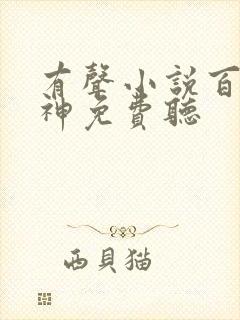 有聲小說百
神免費聽
西貝猫